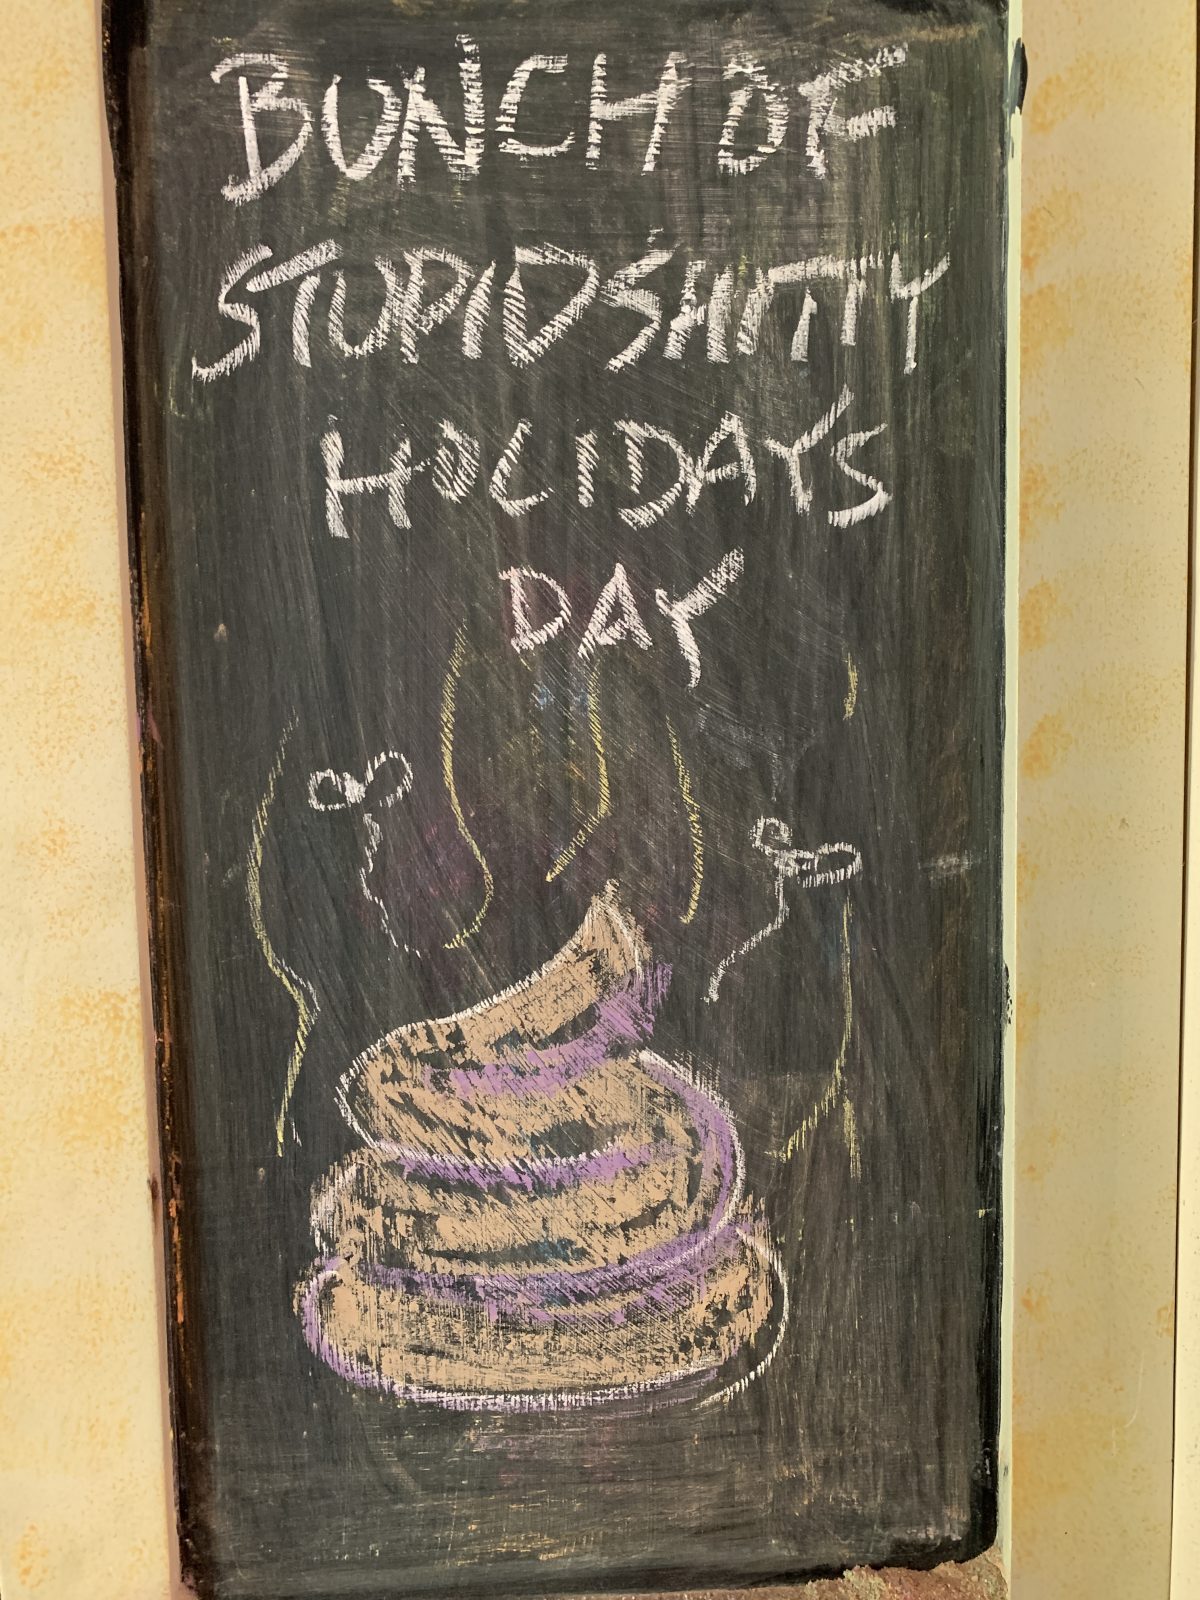 BUNCH OF
STUPID SHITTY
HOLIDAYS
DAY